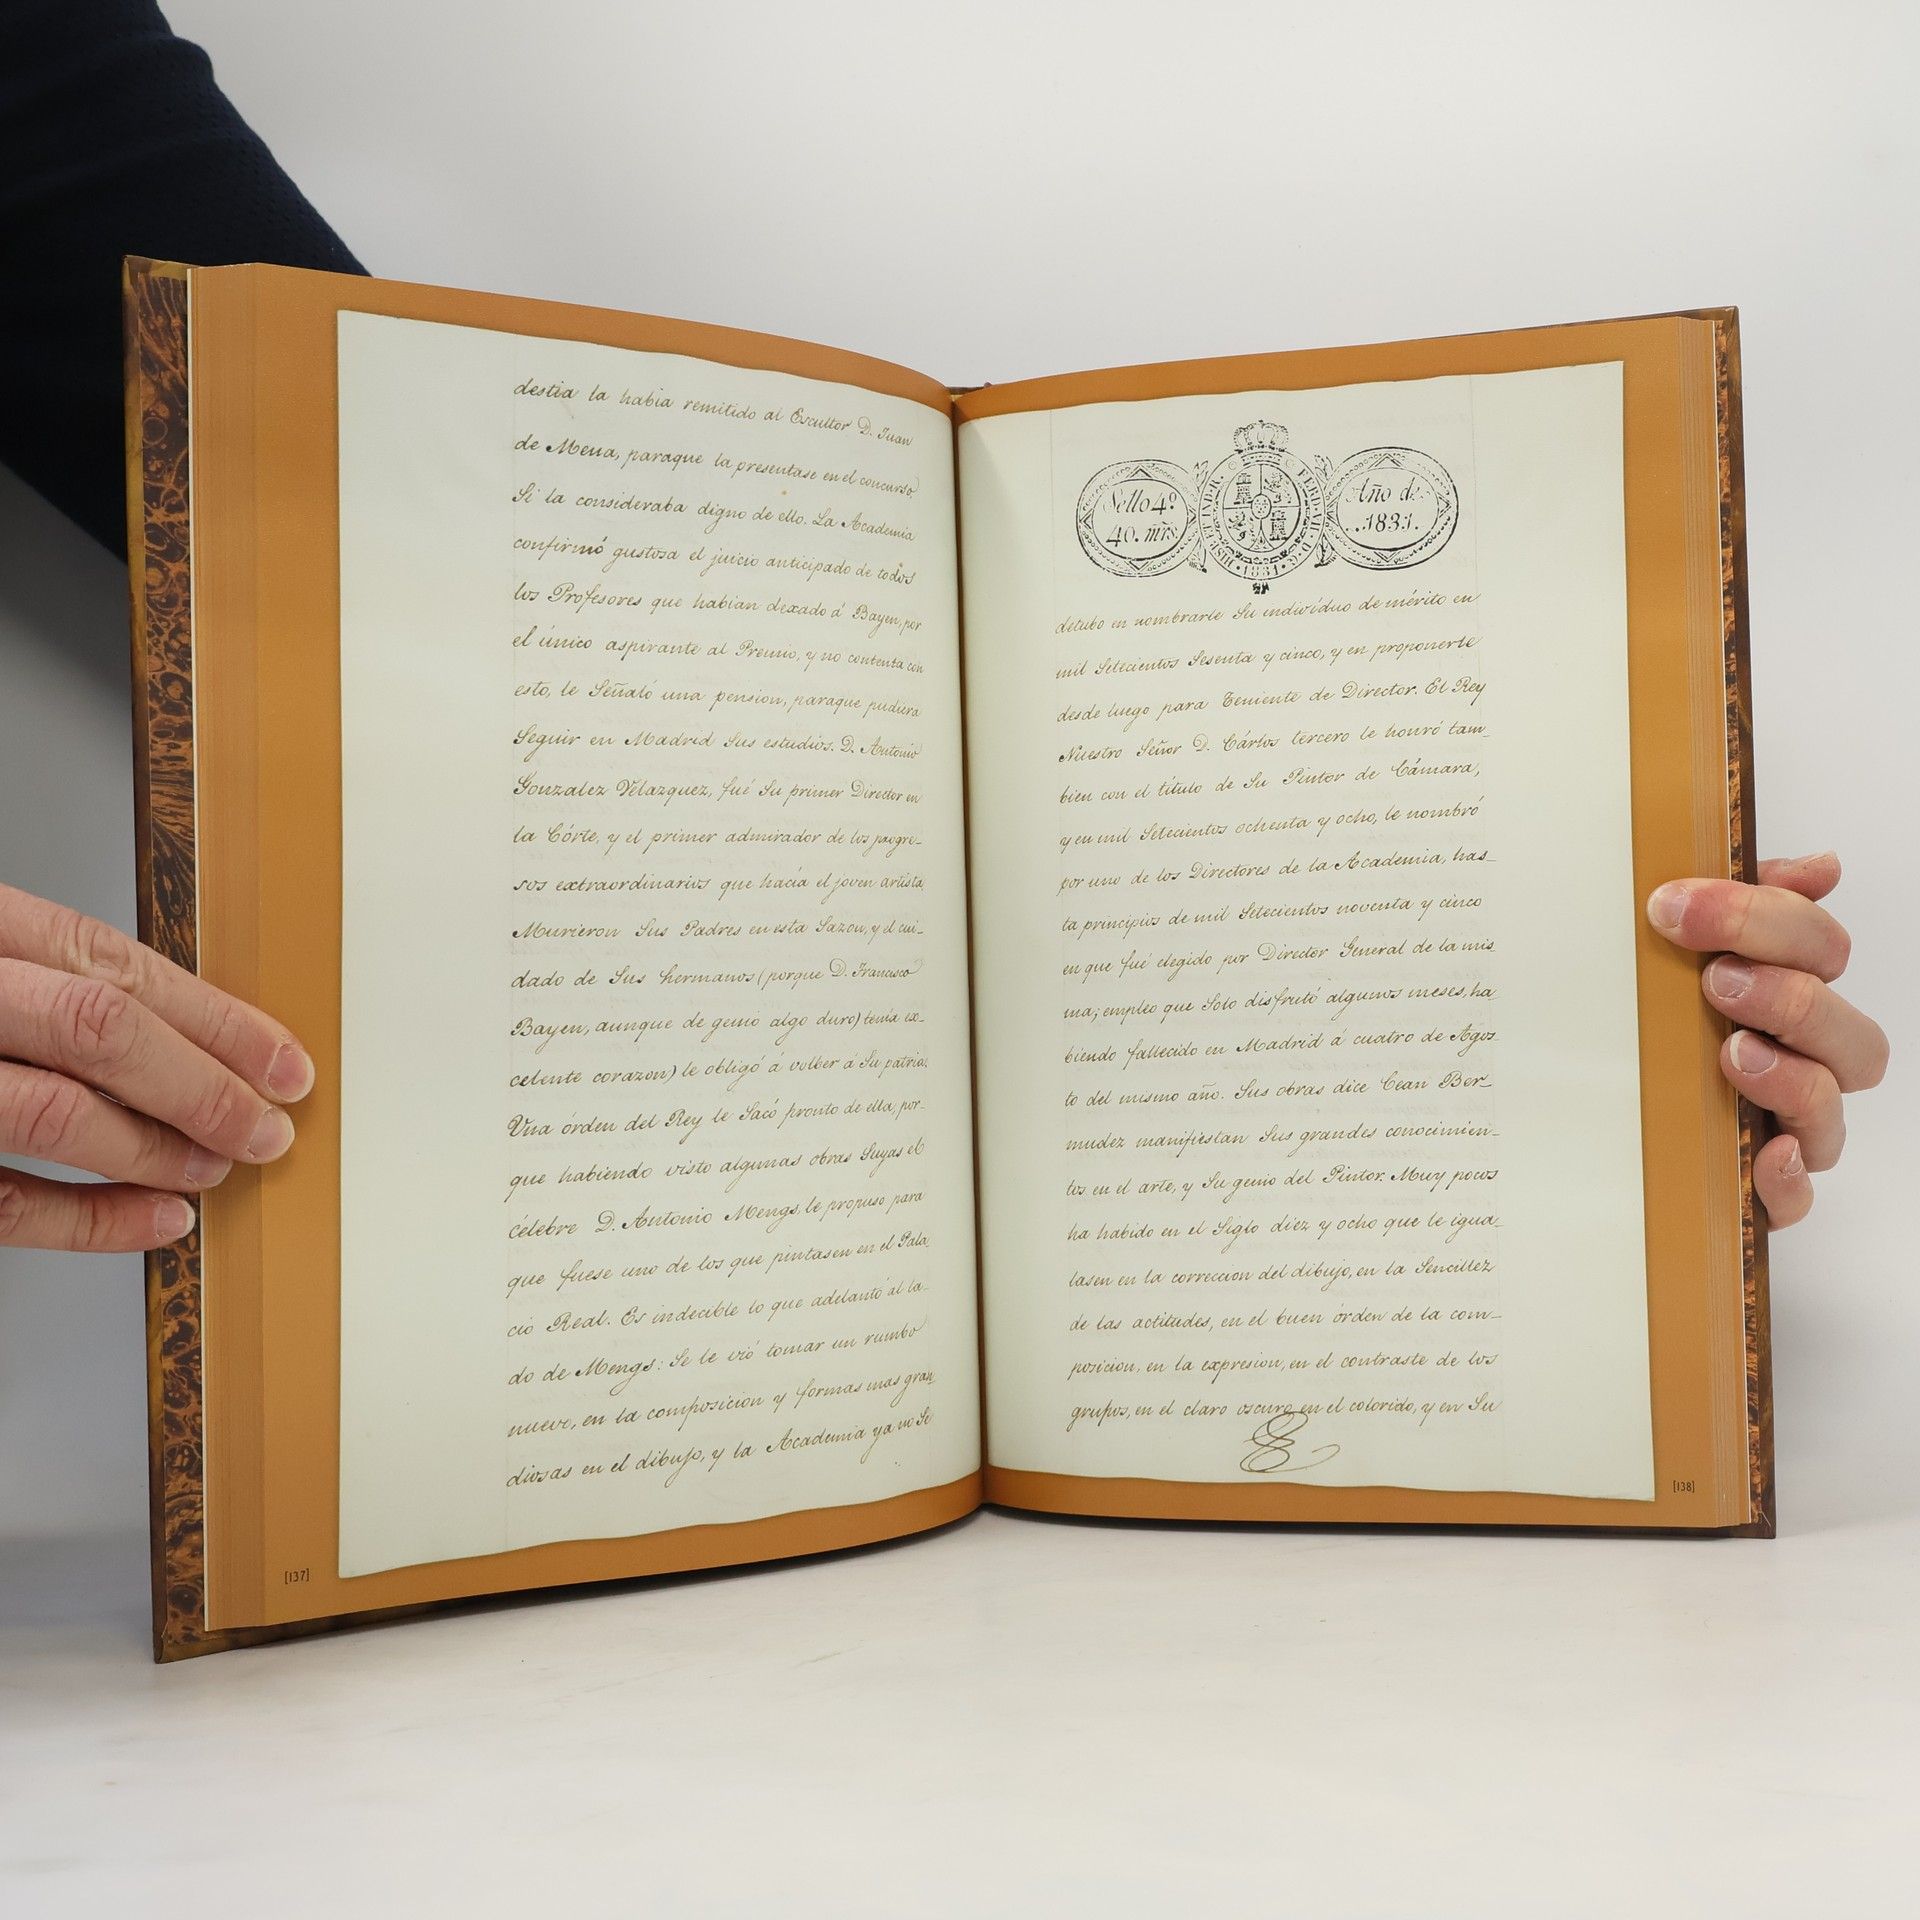 destia la habia remitido al Escultor D. Juan
de Mena, paraque la presentase en el concurso,
Si la consideraba digno de ello. La Academia
confirmó gustosa el juicio anticipado de todos
los Profesores que habian dexado á Bayeu, por
el único aspirante al Premio, y no contenta con
esto, le Señaló una pension, paraque pudiera
Seguir en Madrid Sus estudios. D. Antonio
Gonzalez Velazquez, fué Su primer Director en
la Córte, y el primer admirador de los progre-
sos extraordinarios que hacía el joven artista.
Murieron Sus Padres en esta Sazon, y el cui-
dado de Sus hermanos (porque D. Francisco
Bayeu, aunque de genio algo duro) tenía ex-
celente corazon) le obligó á volber á Su patria.
Una órden del Rey le Sacó pronto de ella, por-
que habiendo visto algunas obras Suyas el
célebre D. Antonio Mengs, le propuso para
que fuese uno de los que pintasen en el Pala-
cio Real. Es indecible lo que adelantó al la-
do de Mengs: Se le vió tomar un rumbo
nuevo, en la composicion y formas mas gran-
diosas en el dibujo, y la Academia ya no Se
[137]
Sello 4º
40. mrs.
HISP. ET IND. R.
FERD. VII. D. G.
1831
Año de
1831.
detubo en nombrarle Su individuo de mérito en
mil Setecientos Sesenta y cinco, y en proponerle
desde luego para Teniente de Director. El Rey
Nuestro Señor D. Cárlos tercero le honró tam-
bien con el título de Su Pintor de Cámara,
y en mil Setecientos ochenta y ocho, le nombró
por uno de los Directores de la Academia, has-
ta principios de mil Setecientos noventa y cinco
en que fué elegido por Director General de la mis
ma; empleo que Solo disfrutó algunos meses, ha-
biendo fallecido en Madrid á cuatro de Agos-
to del mismo año. Sus obras dice Cean Ber-
mudez manifiestan Sus grandes conocimien-
tos en el arte, y Su genio del Pintor. Muy pocos
ha habido en el Siglo diez y ocho que le igua-
lasen en la correccion del dibujo, en la Sencillez
de las actitudes, en el buen órden de la com-
posicion, en la expresion, en el contraste de los
grupos, en el claro oscuro en el colorido, y en Su
[138]